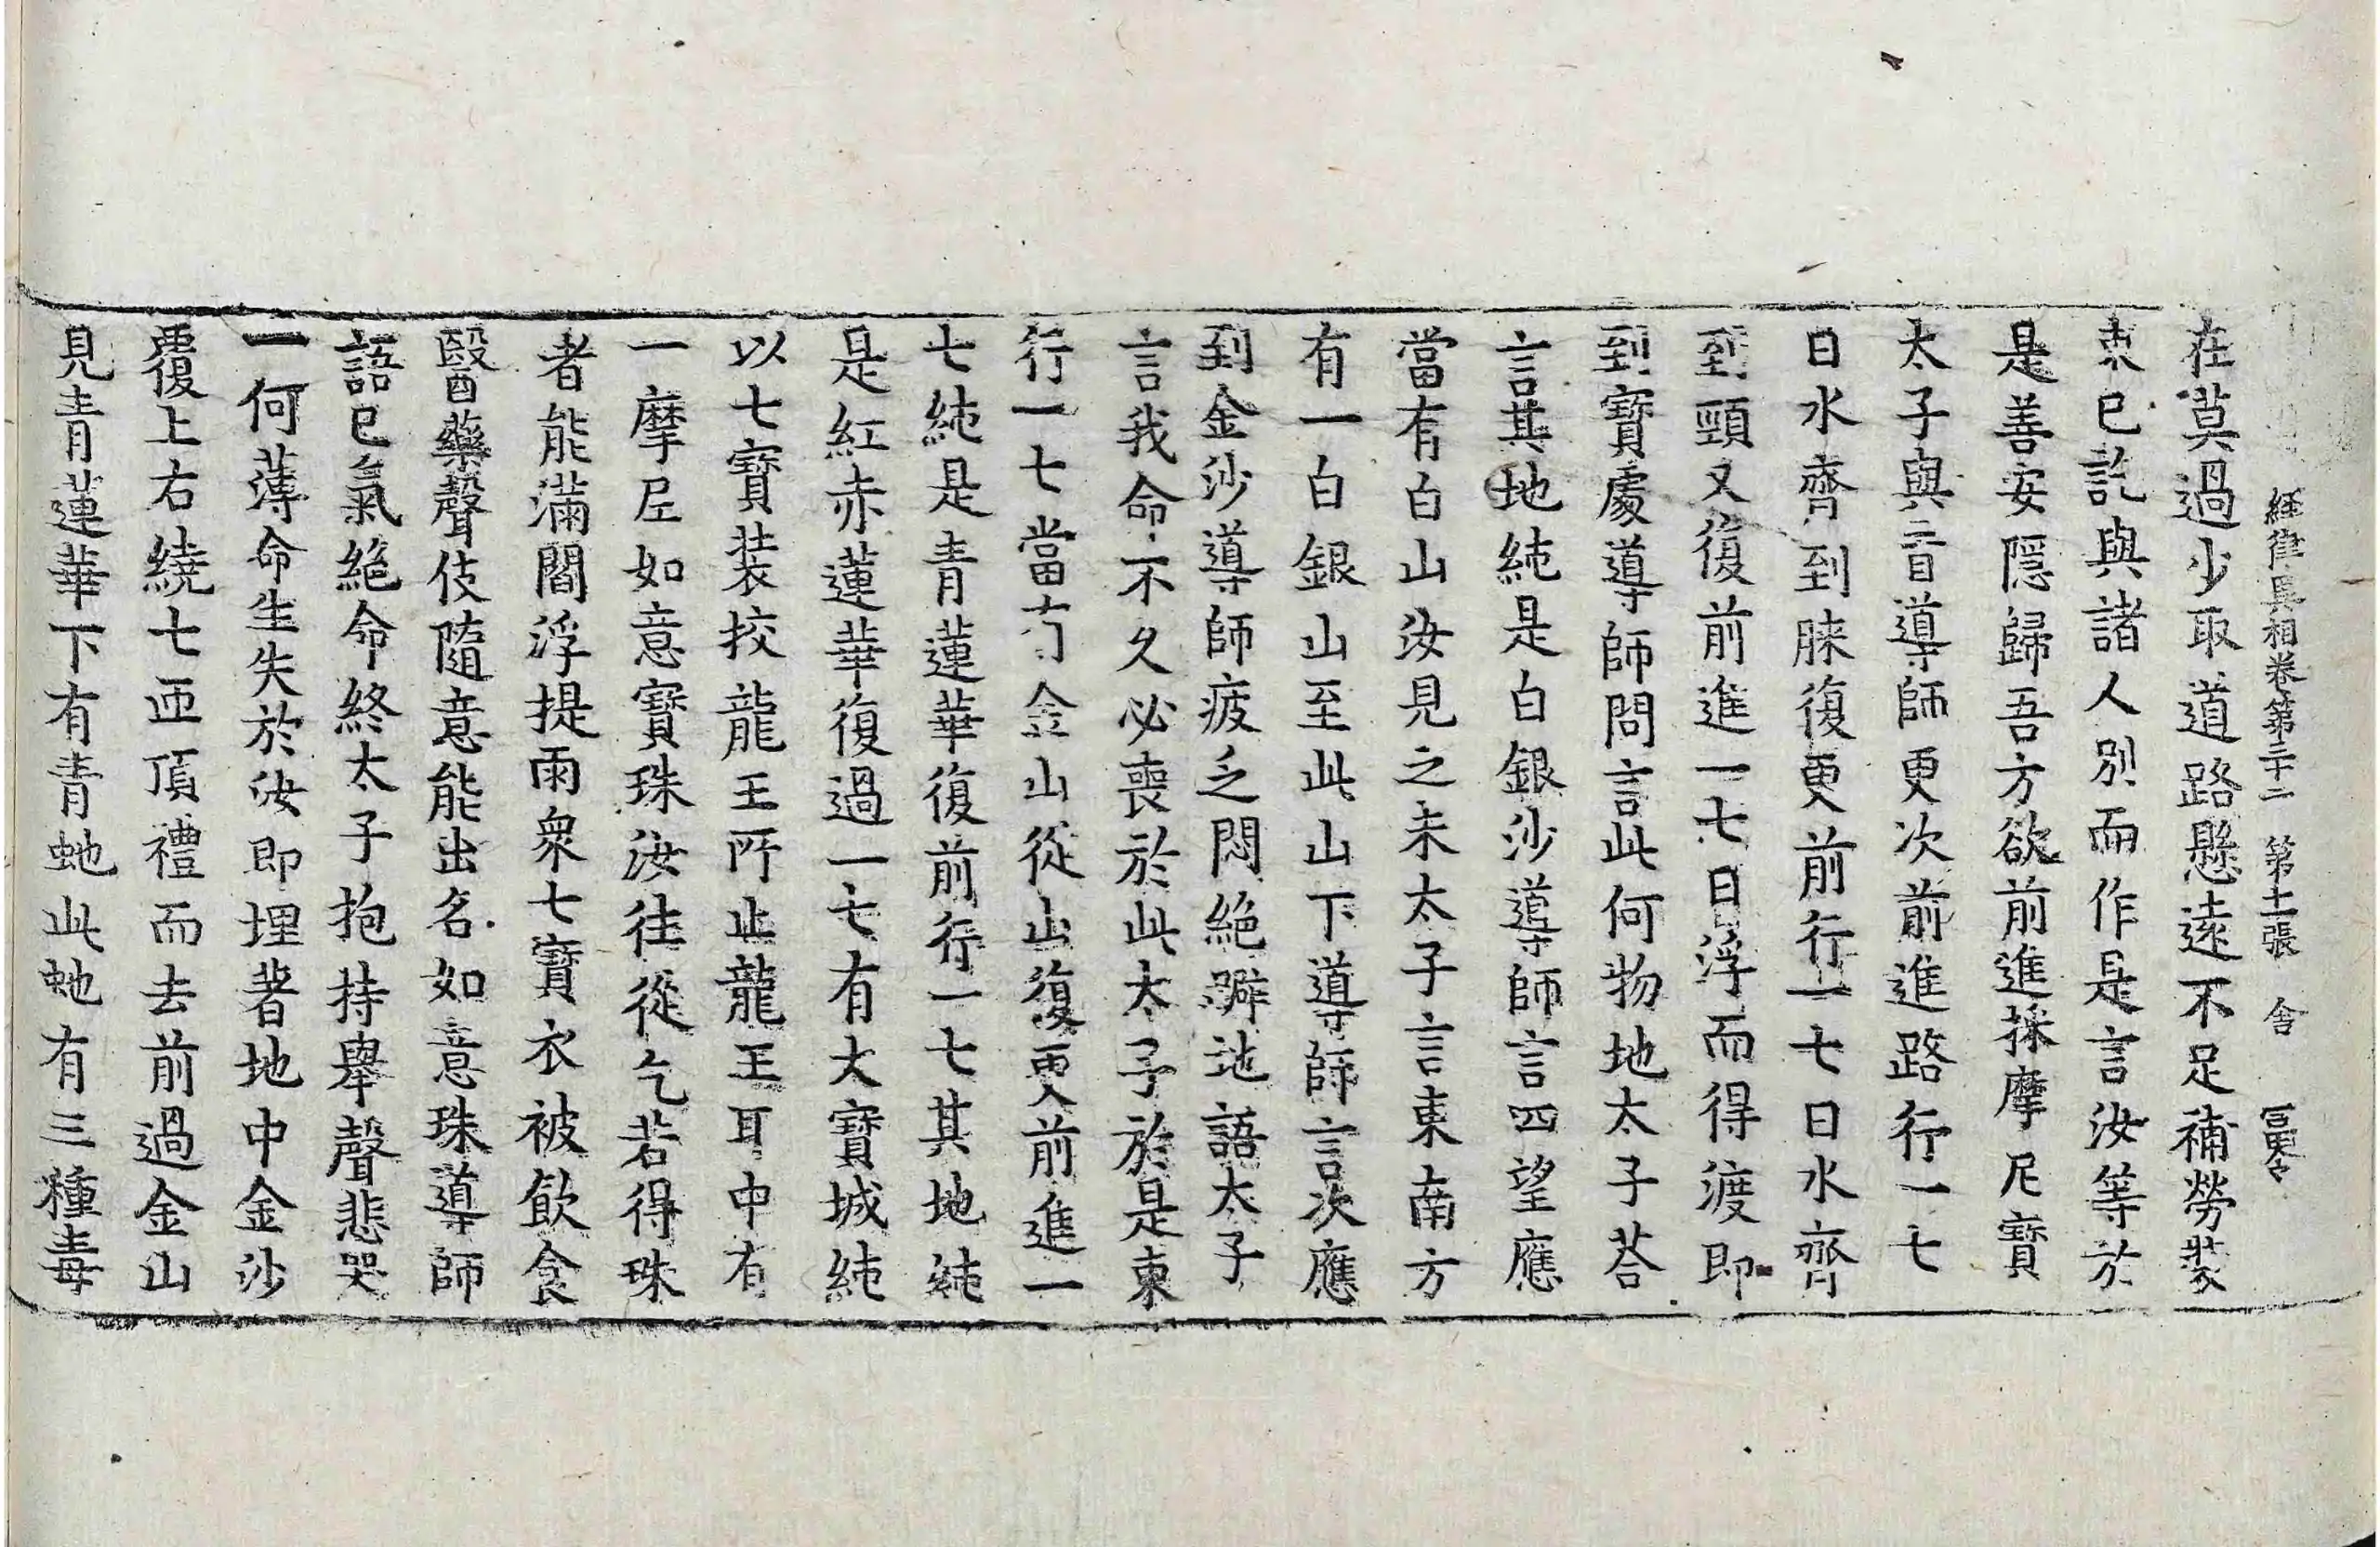 経律異相卷第三十二 第十二張 舍
在莫過少取道路懸遠不足補勞裝
束已訖與諸人別而作是言汝等於
是善安隱歸吾方欲前進採摩尼寶
太子與盲導師更次前進路行一七
日水齊到𦛗復更前行一七日水齊
到頸又復前進一七日浮而得渡即
到寶處導師問言此何物地太子荅
言其地純是白銀沙導師言四望應
當有白山汝見之未太子言東南方
有一白銀山至此山下導師言次應
到金沙導師疲乏悶絕躃地語太子
言我命不久必喪於此太子於是東
行一七當有金山從山復更前進一
七純是青蓮華復前行一七其地純
是紅赤蓮華復過一七有大寶城純
以七寶裝挍龍王所止龍王耳中有
一摩尼如意寶珠汝往從乞若得珠
者能滿閻浮提雨衆七寶衣被飲食
醫藥聲伎隨意能出名如意珠導師
語已氣絕命終太子抱持舉聲悲哭
一何薄命生失於汝即埋著地中金沙
覆上右繞七匝頂禮而去前過金山
見青蓮華下有青虵此虵有三種毒